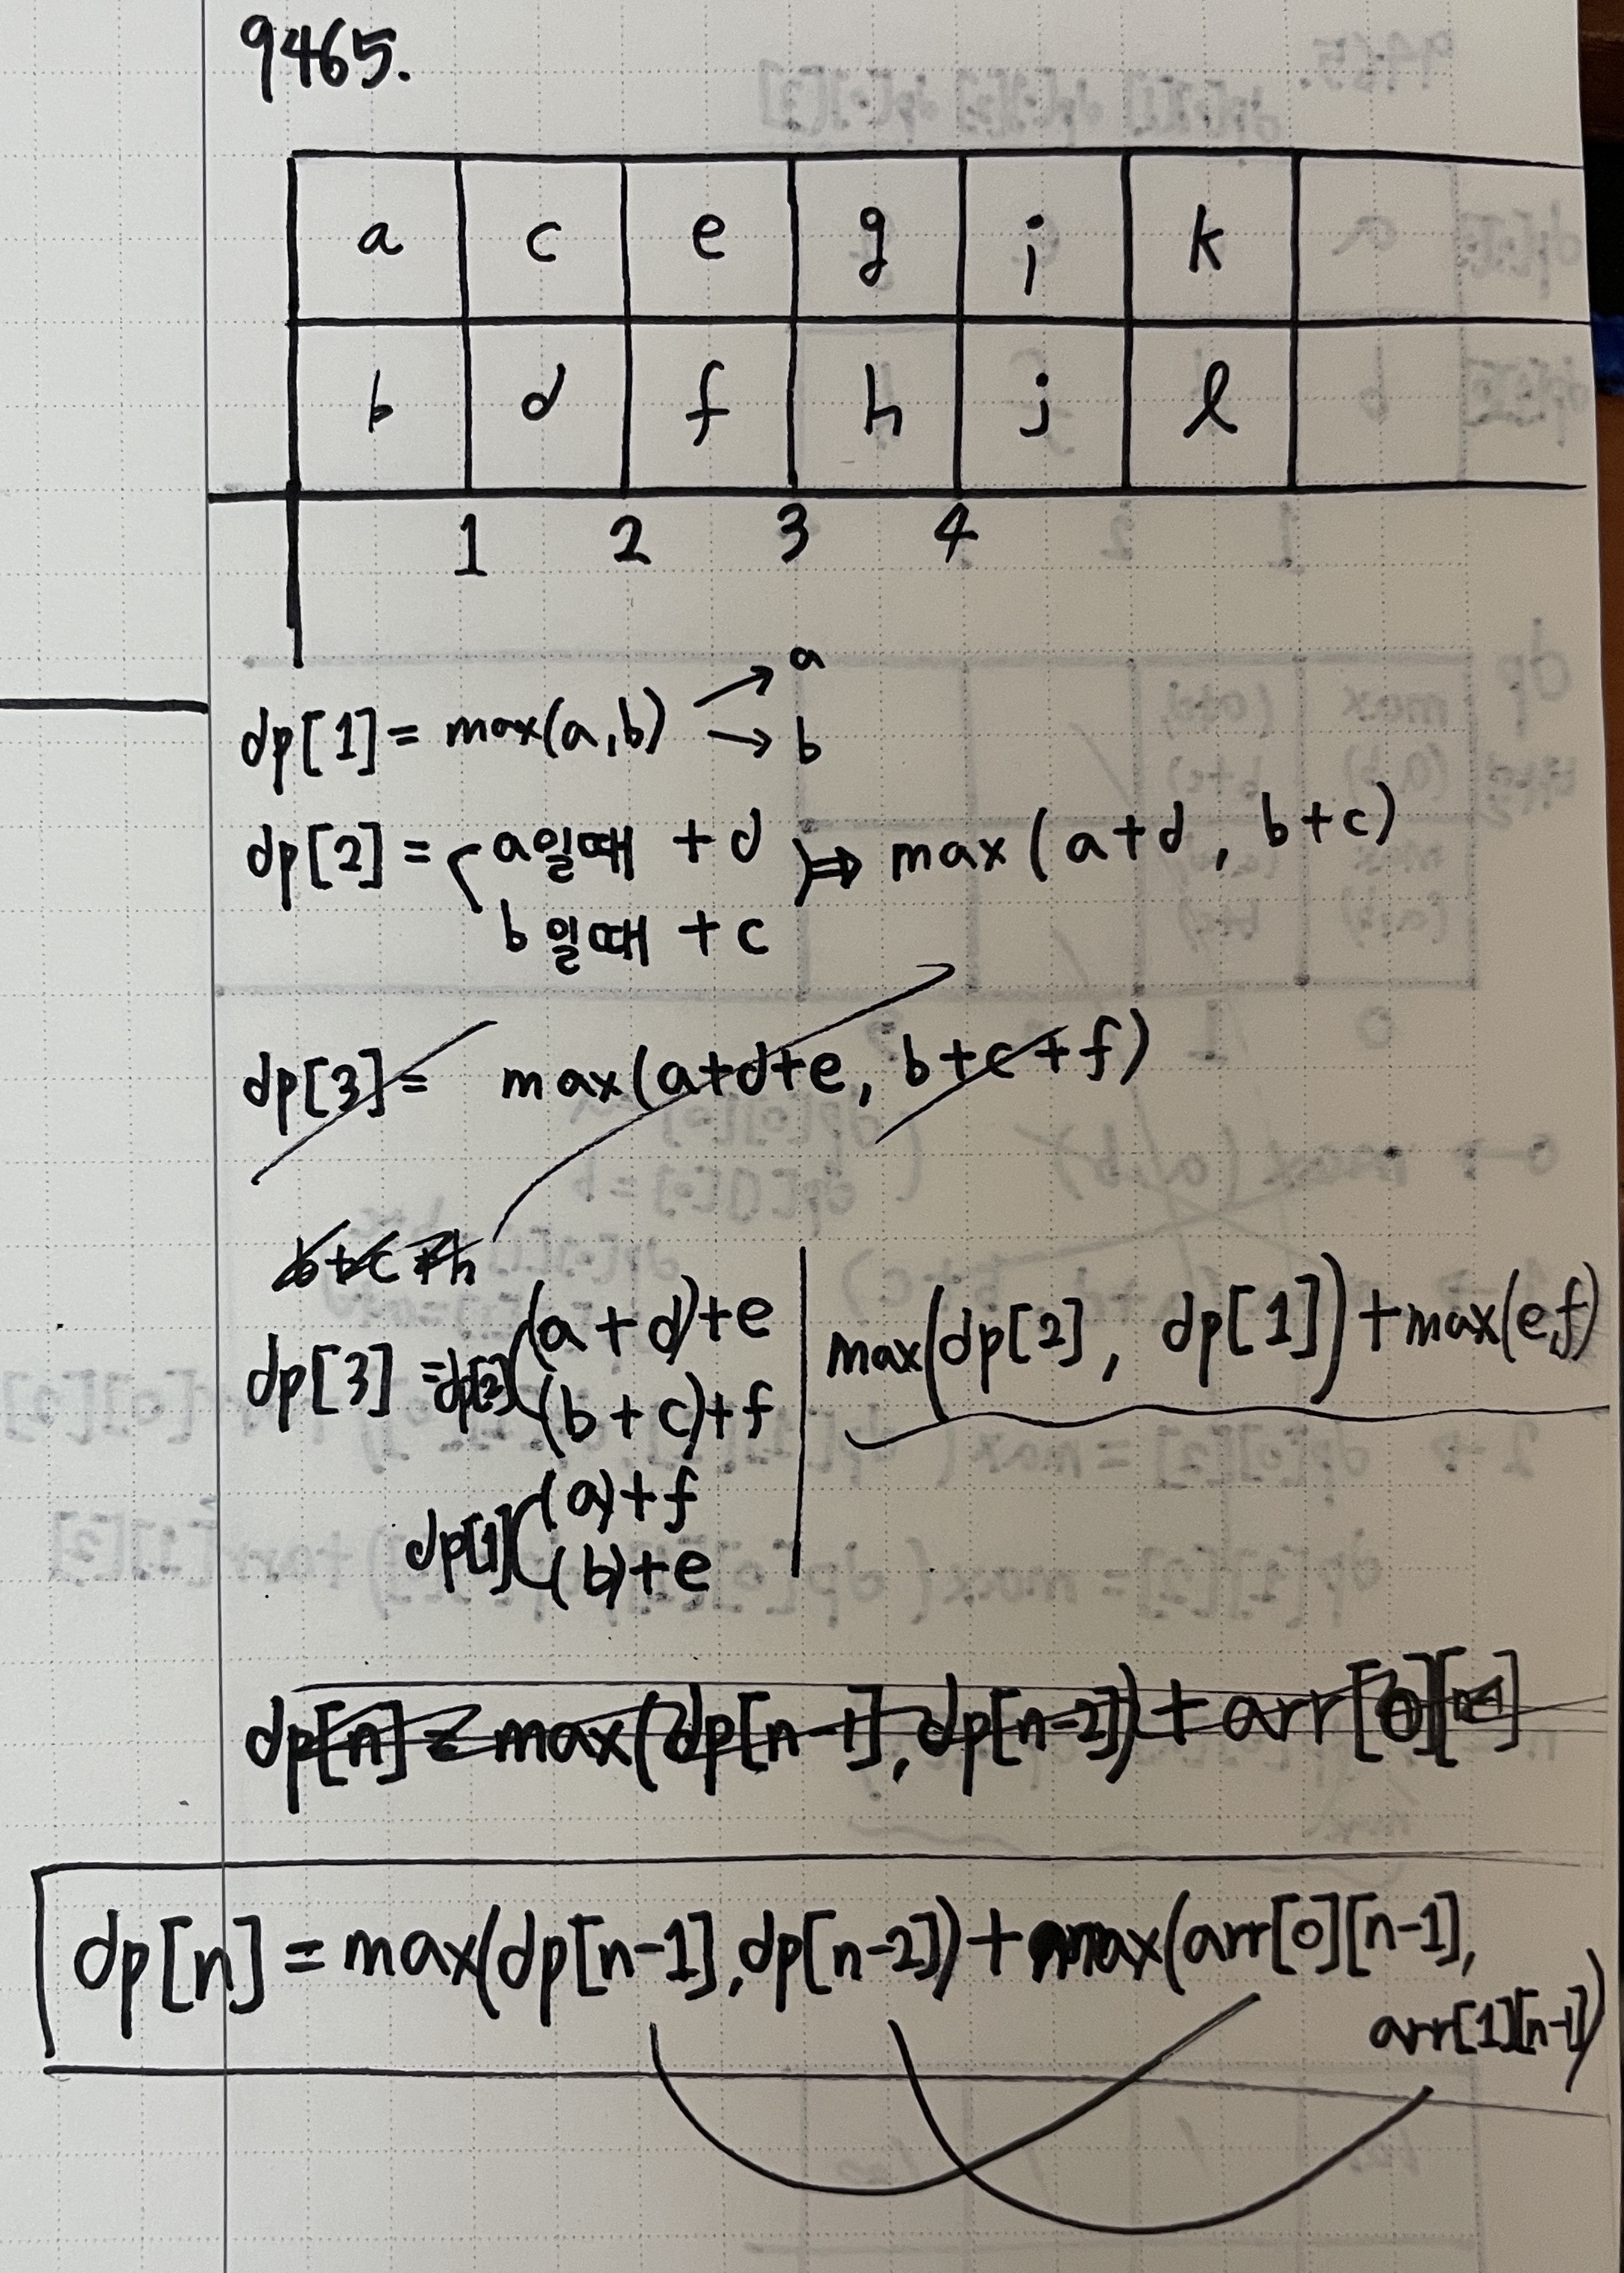 9465.
a c e g i k
b d f h j l
1 2 3 4
dp[1] = max(a,b) → a
→ b
dp[2] = a일때 +d ⇒ max(a+d, b+c)
b일때 +c
dp[3] = max(a+d+e, b+c+f)
b+c+h
dp[3] = dp[2] (a+d)+e max(dp[2], dp[1])+max(e,f)
(b+c)+f
dp[1] (a)+f
(b)+e
dp[n] = max(dp[n-1], dp[n-2]) + arr[0][n-1]
dp[n] = max(dp[n-1], dp[n-2])+max(arr[0][n-1],
arr[1][n-1])